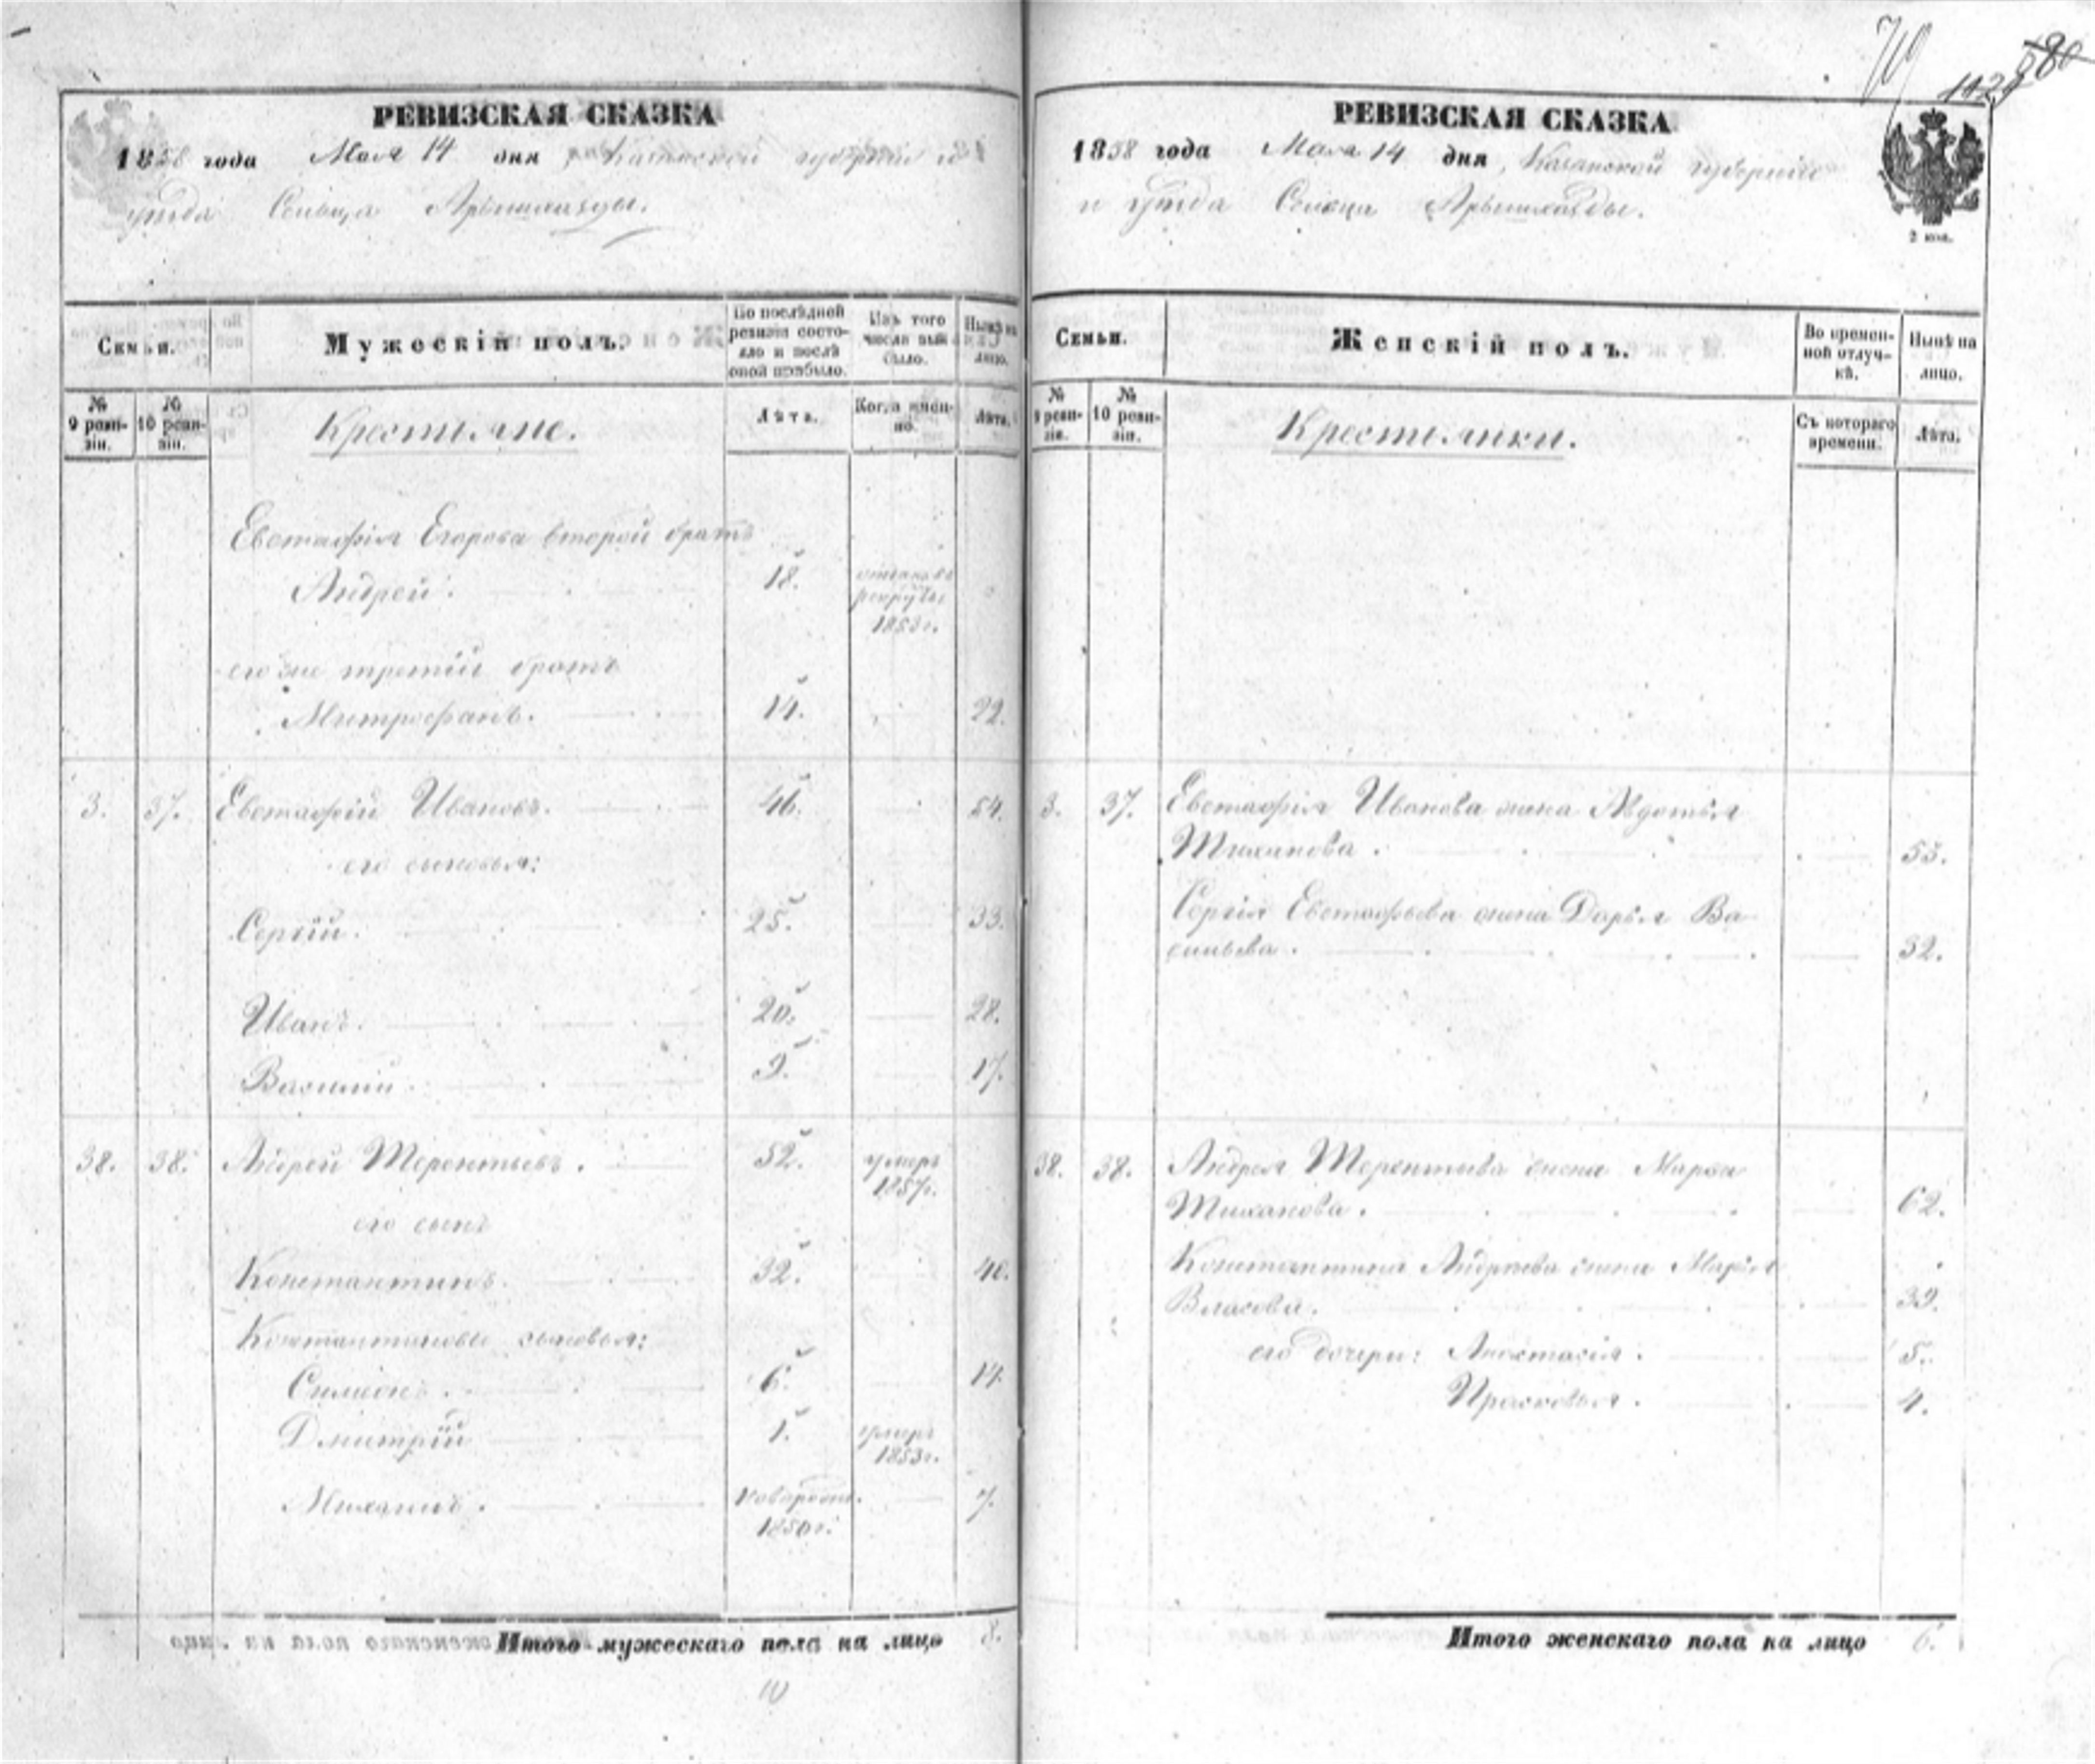 РЕВИЗСКАЯ СКАЗКА
1858 года Мая 14 дня, Казанской губерніи и
уѣзда Сельца
Семьи.
Мужескій полъ.
По послѣдней ревизіи состояло и послѣ оной прибыло.
Изъ того числа выбыло.
Нынѣ на лицо.
№ 9 ревизіи.
№ 10 ревизіи.
Крестьяне.
Лѣта.
Когда именно.
Лѣта.
Евстафія Егорова второй братъ
Андрей. 18. рекруты 1853 г.
его же третій братъ
Митрофанъ. 14. 22.
3. 37. Евстафій Ивановъ. 46. 54.
его сыновья:
Сергій. 25. 33.
Иванъ. 20. 28.
Василій. 9. 17.
38. 38. Андрей Терентьевъ. 52. умеръ 1857г.
его сынъ
Константинъ. 32. 40.
Константиновы сыновья:
Симеонъ. 6. 14.
Дмитрій 1. умеръ 1853г.
Михаилъ. новорожд. 1850г. 7.
Итого мужескаго пола на лицо 8.
10
РЕВИЗСКАЯ СКАЗКА
1858 года Мая 14 дня, Казанской губерніи
и уѣзда Сельца
2 коп.
Семьи.
Женскій полъ.
Во временной отлучкѣ.
Нынѣ на лицо.
№ 9 ревизіи.
№ 10 ревизіи.
Крестьянки.
Съ котораго времени.
Лѣта.
3. 37. Евстафія Иванова жена Авдотья
Тиханова. 53.
Сергія Евстафьева жена Дарья Ва-
сильева. 32.
38. 38. Андрея Терентьева жена Марѳа
Тиханова. 62.
Константина Андреева жена Марья
Власова. 39.
его дочери: Анастасія. 5.
Прасковья. 4.
Итого женскаго пола на лицо 6.